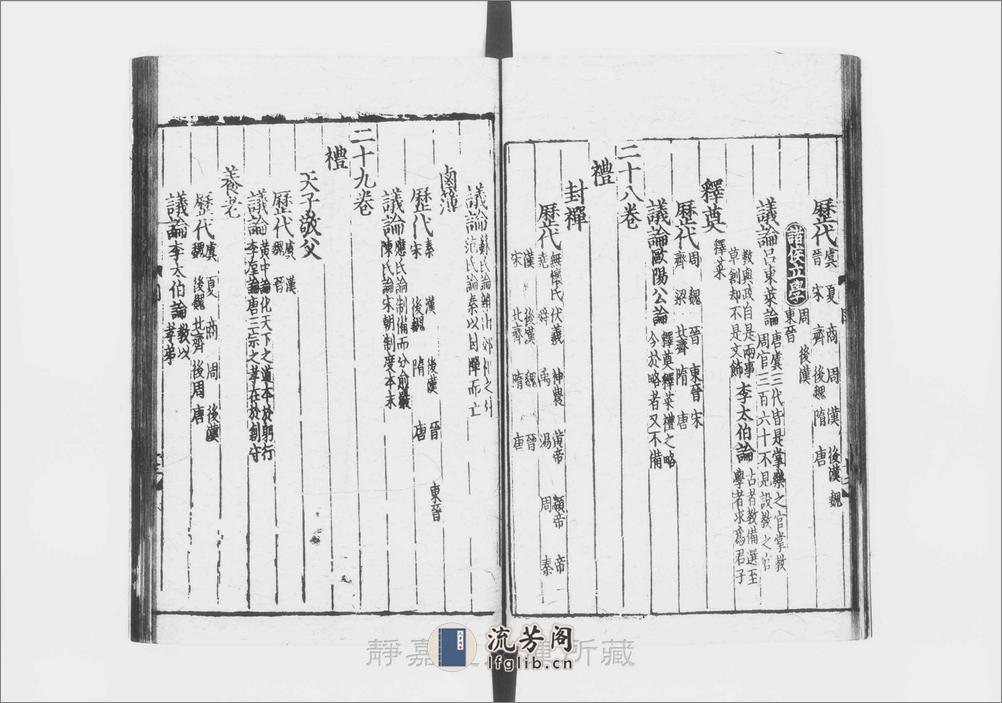 歷代 虞 夏 商 周 漢 後漢 魏
晉 宋 齊 後魏 隋 唐
諸侯立學 周 後漢
東晉
議論 呂東萊論 唐虞三代皆是掌樂之官掌教
周官三百六十不見設教之官
教與政自是兩事
草創却不是文飾 李太伯論 古者教備選至
學者求爲君子
釋奠 釋菜
歷代 周 魏 晉 東晉 宋
齊 梁 北齊 隋 唐
議論 歐陽公論 釋奠釋菜禮之略
今於略者又不備
二十八卷
禮
封禪
歷代 無懷氏 伏羲 神農 黃帝 顓帝 帝
堯 舜 禹 湯 周 秦
漢 後漢 魏 晉
宋 北齊 隋 唐
議論
氏論秦以封禪而亡
鹵簿
歷代 秦 漢 後漢 晉 東晉
宋 後魏 隋 唐
議論 應氏論制備而分愈嚴
陳氏論宋朝制度本末
二十九卷
禮
天子敬父
歷代 虞 漢
魏 晉
議論 黃中論化天下之道本於躬行
李淫論唐三宗之孝在於創守
養老
歷代 虞 夏 商 周 後漢
魏 後魏 北齊 後周 唐
議論 李太伯論 教以
孝弟
靜嘉 所藏
流芳阁
lfglib.cn